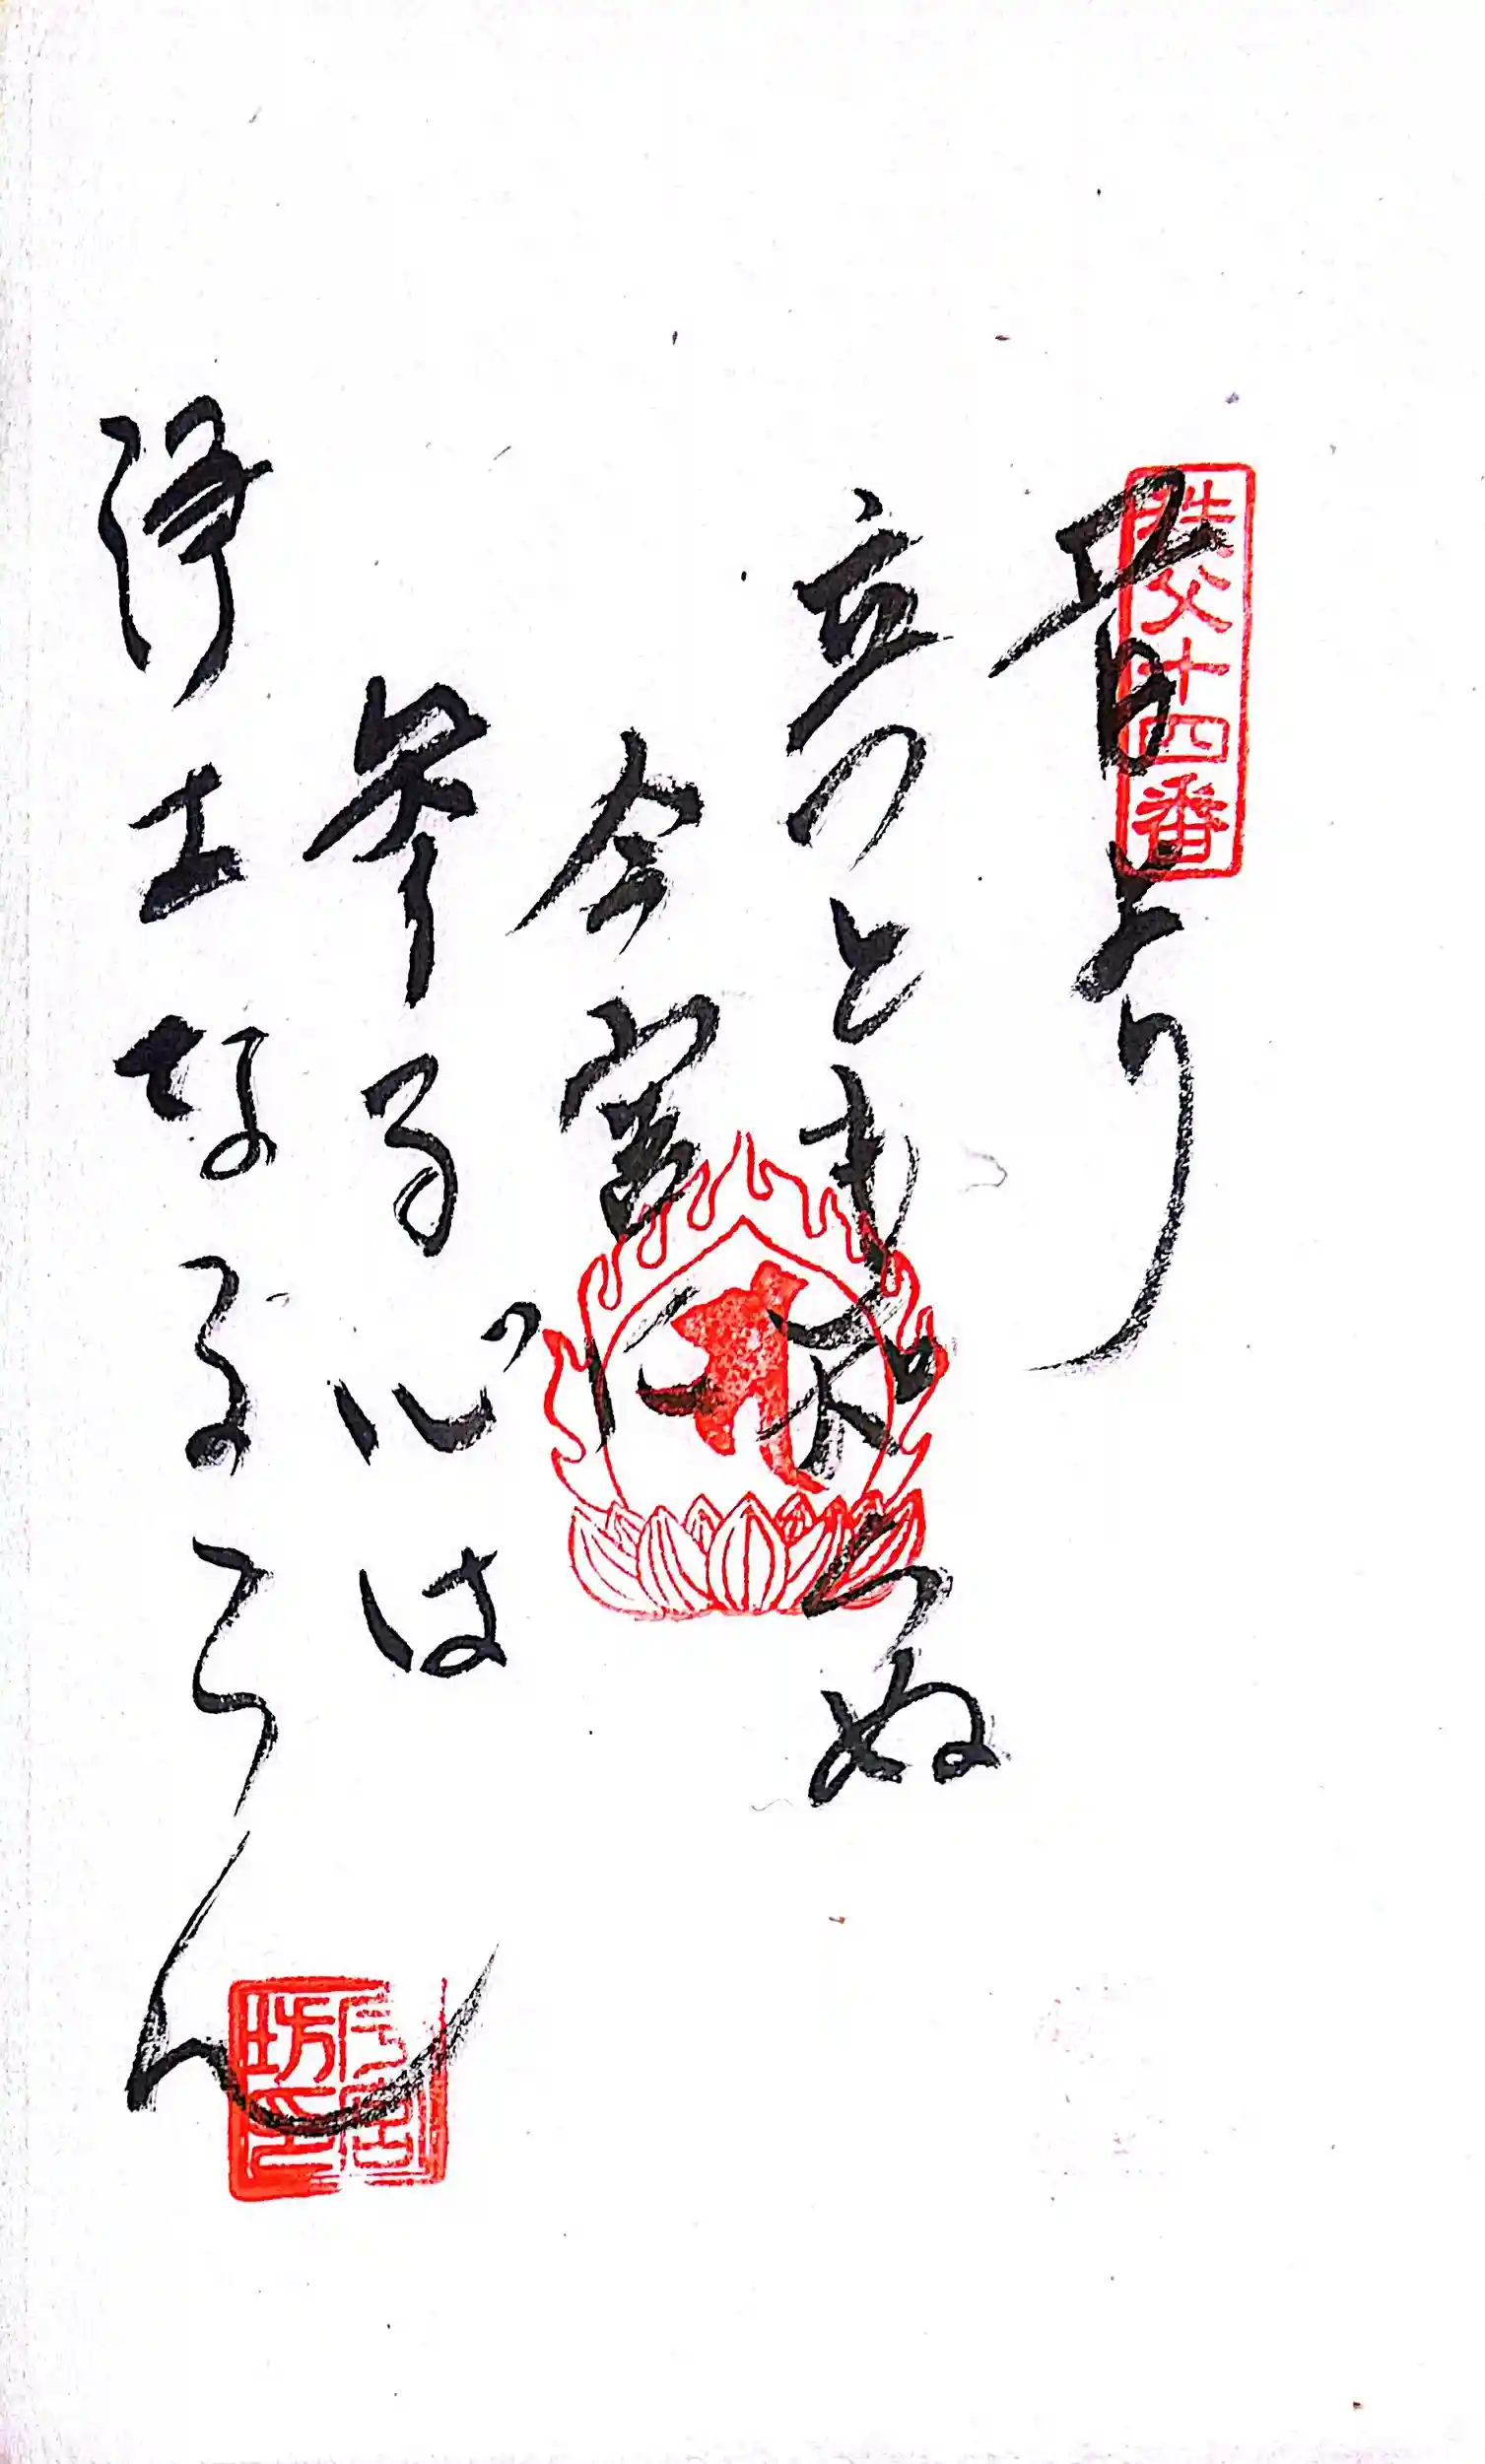 秩父十四番
昔より
立つとも知らぬ
今宮に
参る心は
浄土なるらん
坊